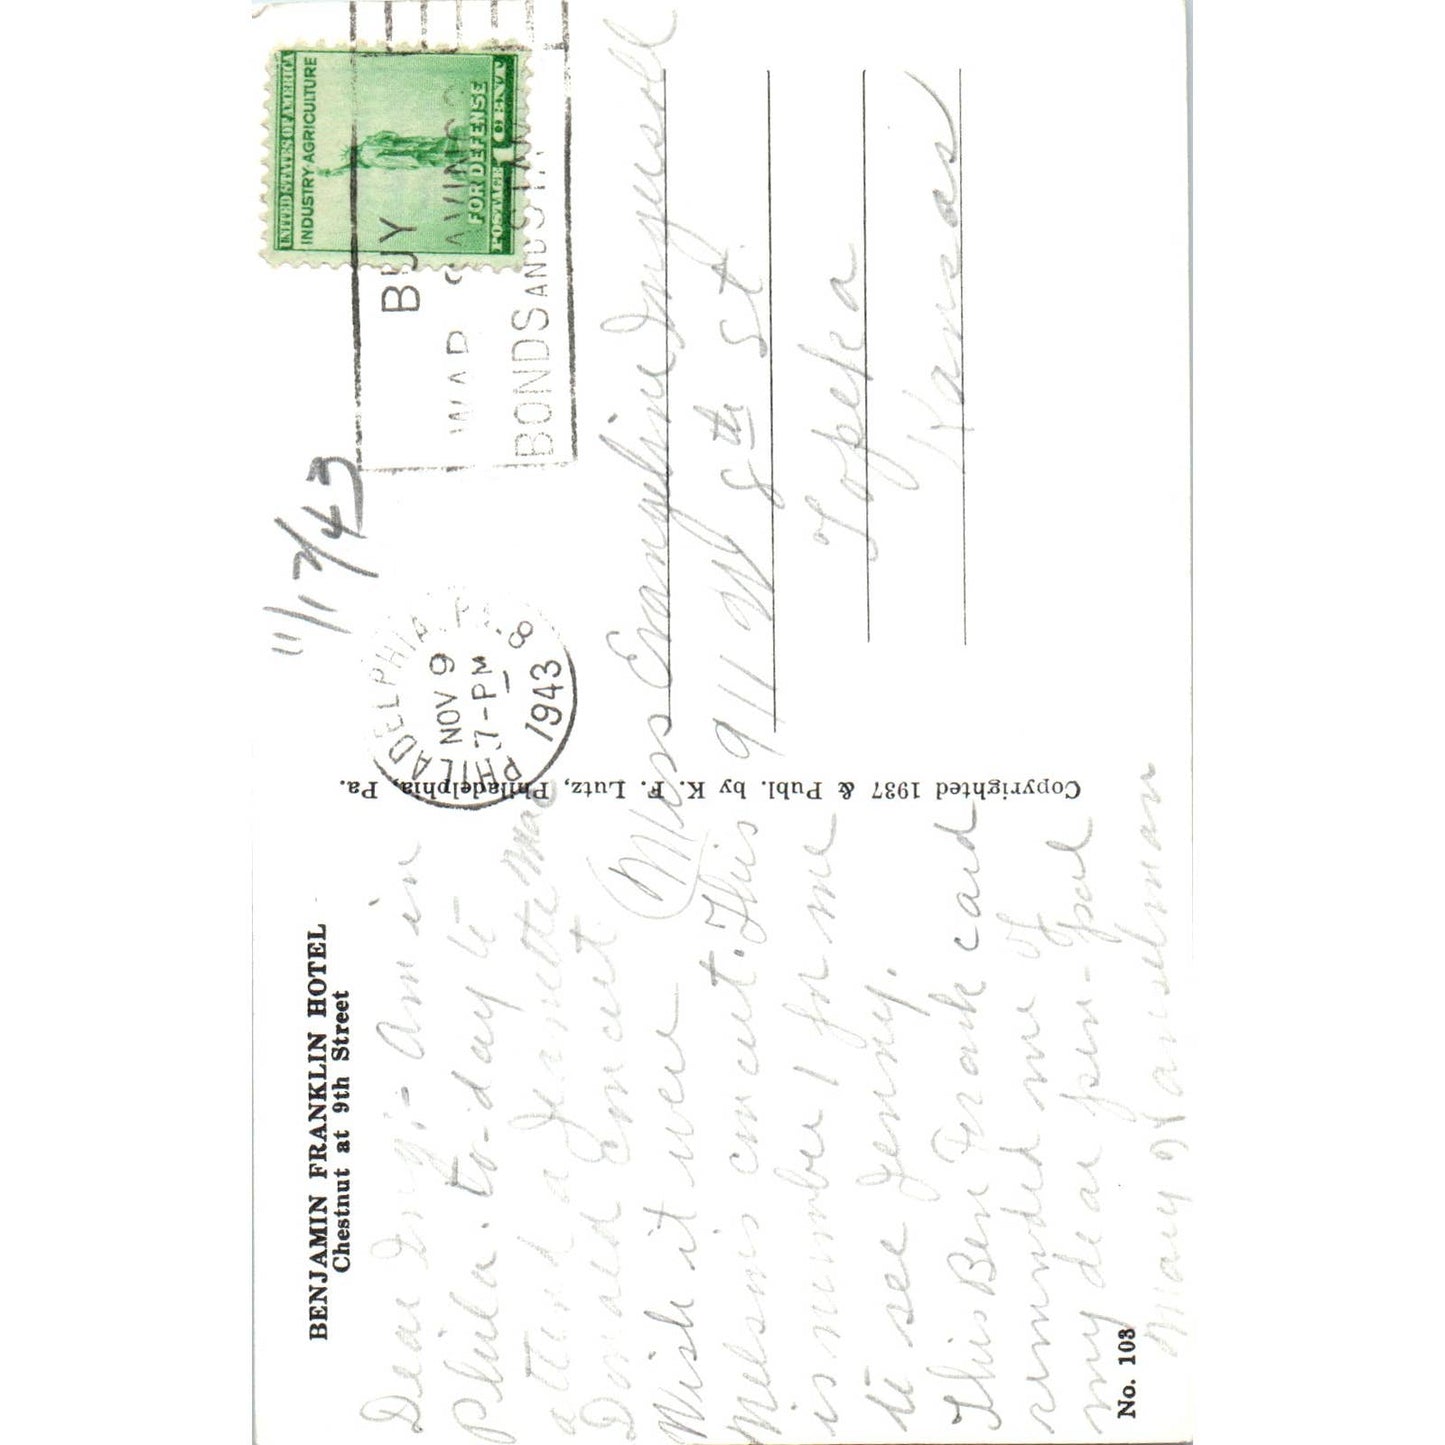 BENJAMIN FRANKLIN HOTEL
Chestnut at 9th Street
Dear Ing:- Am in
Phila. to-day to
attend a Jeanette Mac
Donald Concert
Wish it were
Nelson's concert. This
is number 1 for me
to see Jenny.
This Ben Frank card
reminded me of
my dear pen-pal
Mary Hanselman
No. 103
Copyrighted 1937 & Publ. by K. F. Lutz, Philadelphia, Pa.
11/17/43
PHILADELPHIA, PA.
NOV 9
7-PM
1943
8
BUY
WAR SAVINGS
BONDS AND STAMPS
UNITED STATES OF AMERICA
INDUSTRY·AGRICULTURE
FOR DEFENSE
POSTAGE 1 CENT
Miss Evangeline Ingersoll
911 W 8th St.
Topeka
Kansas